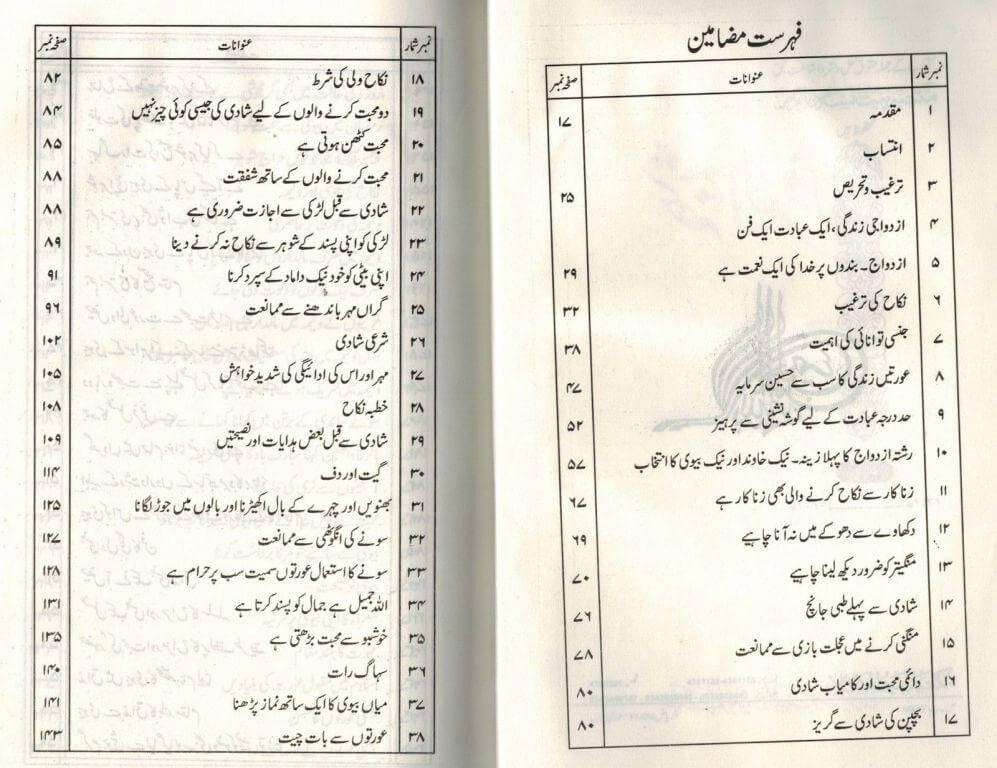 فہرست مضامین
نمبر شمار عنوانات صفحہ نمبر
۱ مقدمہ ۱۷
۲ انتساب
۳ ترغیب و تحریص ۲۵
۴ ازدواجی زندگی، ایک عبادت ایک فن
۵ ازدواج۔ بندوں پر خدا کی ایک نعمت ہے ۲۹
۶ نکاح کی ترغیب ۳۲
۷ جنسی توانائی کی اہمیت ۳۸
۸ عورتیں زندگی کا سب سے حسین سرمایہ ۴۷
۹ حد درجہ عبادت کے لیے گوشہ نشینی سے پرہیز ۵۲
۱۰ رشتہ ازدواج کا پہلا زینہ۔ نیک خاوند اور نیک بیوی کا انتخاب ۵۷
۱۱ زنا کار سے نکاح کرنے والی بھی زنا کار ہے ۶۷
۱۲ دکھاوے سے دھوکے میں نہ آنا چاہیے ۶۹
۱۳ منگیتر کو ضرور دیکھ لینا چاہیے ۷۰
۱۴ شادی سے پہلے طبی جانچ ۷۶
۱۵ منگنی کرنے میں عجلت بازی سے ممانعت ۷۸
۱۶ دائمی محبت اور کامیاب شادی ۸۰
۱۷ بچپن کی شادی سے گریز ۸۰
نمبر شمار عنوانات صفحہ نمبر
۱۸ نکاح ولی کی شرط ۸۲
۱۹ دو محبت کرنے والوں کے لیے شادی کی جیسی کوئی چیز نہیں ۸۴
۲۰ محبت کٹھن ہوتی ہے ۸۵
۲۱ محبت کرنے والوں کے ساتھ شفقت ۸۸
۲۲ شادی سے قبل لڑکی سے اجازت ضروری ہے ۸۸
۲۳ لڑکی کو اپنی پسند کے شوہر سے نکاح نہ کرنے دینا ۸۹
۲۴ اپنی بیٹی کو خود نیک داماد کے سپرد کرنا ۹۱
۲۵ گراں مہر باندھنے سے ممانعت ۹۶
۲۶ شرعی شادی ۱۰۲
۲۷ مہر اور اس کی ادائیگی کی شدید خواہش ۱۰۵
۲۸ خطبہ نکاح ۱۰۸
۲۹ شادی سے قبل بعض ہدایات اور نصیحتیں ۱۰۹
۳۰ گیت اور دف ۱۱۴
۳۱ بھنویں اور چہرے کے بال اکھیڑنا اور بالوں میں جوڑ لگانا ۱۲۵
۳۲ سونے کی انگوٹھی سے ممانعت ۱۲۷
۳۳ سونے کا استعمال عورتوں سمیت سب پر حرام ہے ۱۲۸
۳۴ اللہ جمیل ہے جمال کو پسند کرتا ہے ۱۳۱
۳۵ خوشبو سے محبت بڑھتی ہے ۱۳۵
۳۶ سہاگ رات ۱۴۰
۳۷ میاں بیوی کا ایک ساتھ نماز پڑھنا ۱۴۱
۳۸ عورتوں سے بات چیت ۱۴۳